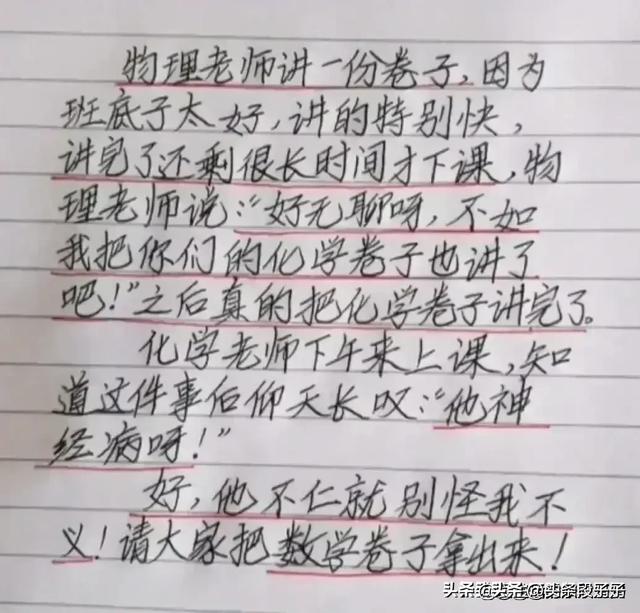 物理老师讲一份卷子,因为
班底子太好,讲的特别快,
讲完了还剩很长时间才下课,物
理老师说:“好无聊呀,不如
我把你们的化学卷子也讲了
吧!”之后真的把化学卷子讲完了。
化学老师下午来上课,知
道这件事后仰天长叹:“他神
经病呀!”
好,他不仁就别怪我不
义!请大家把数学卷子拿出来!